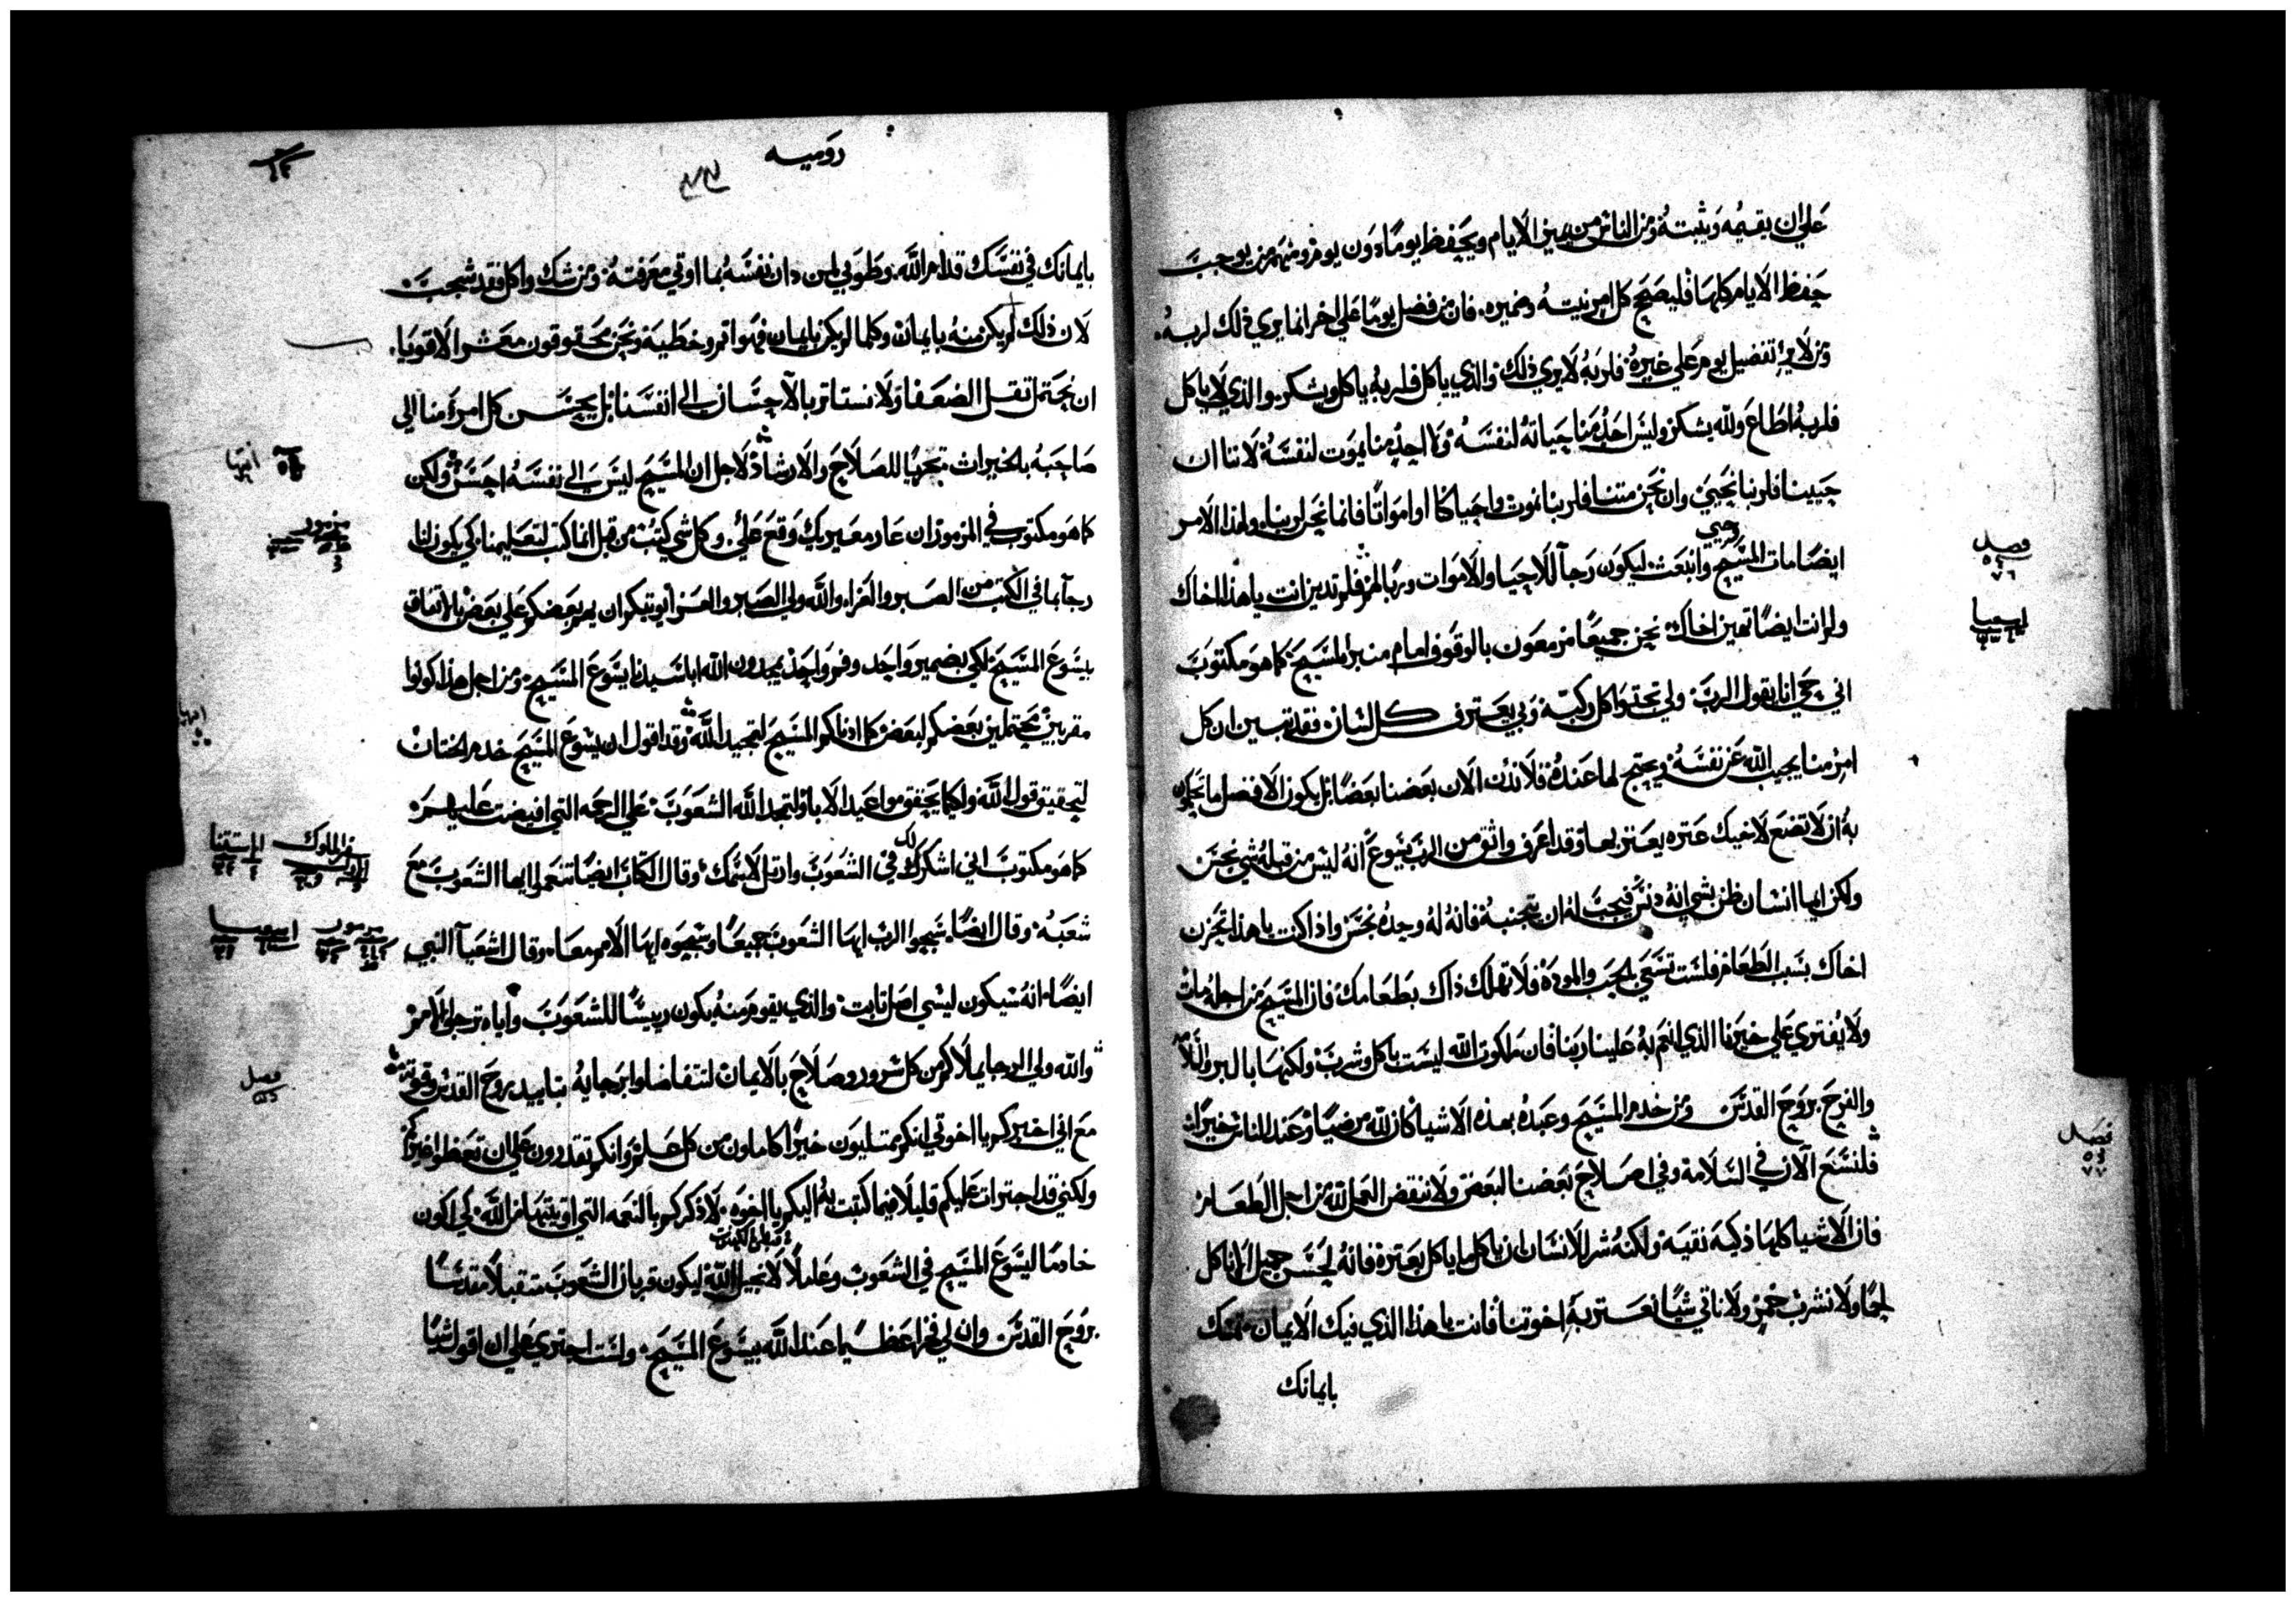 علي ان يقيمه ويثبته ومن الناس من يميز الايام ويحفظ يوما دون يوم ومنهم من يوجب
حفظ الايام كلها فليصحح كل امرء نيته وضميره. فان من فضل يوما علي اخر انما يري ذلك لربه.
ومن لا يري تفضيل يوم علي غيره فلربه لا يري ذلك والذي ياكل فلربه ياكل ويشكر والذي لا ياكل
فلربه اطاع ولله يشكر وليس احد منا حياته لنفسه ولا احد منا يموت لنفسه لاننا ان
حيينا فلربنا نحيي وان نحن متنا فلربنا نموت واحيا كنا او امواتا فانما نحن لربنا ولهذا الامر
وحيي
ايضا مات المسيح وانبعث ليكون ربا للاحيا والاموات فلم تدين انت يا هذا اخاك
فصل
٧٦
ولم انت ايضا تهين اخاك نحن جميعا مزمعون بالوقوف امام منبر المسيح كما هو مكتوب
اني حي انا يقول الرب ولي تجثوا كل ركبة وبي يعترف كل لسان فقد تبين ان كل
امرء منا يجيب الله عن نفسه ويحتج لما عنده فلا ندن الان بعضنا بعضا بل يكون الافضل ما تحكمون
به ان لا تضع لاخيك عثره يعثر بها وقد اعرف واثق من الرب يسوع انه ليس من قبله شي نجس
ولكن ايما انسان ظن بشي انه دنس فيجب له ان يتجنبه فانه له وحده نجس واذا كنت يا هذا تحزن
اخاك بسبب الطعام فلست تسعي بالحب والمودة فلا تهلك ذاك بطعامك فان المسيح من اجله مات
ولا يفتري علي خيرنا الذي انعم به علينا ربنا فان ملكوت الله ليست باكل وشرب ولكنها بالبر والسلامه
والفرح بروح القدس ومن خدم المسيح وعبده بهذه الاشيا كان لله مرضيا وعند الناس خيرا
فصل
٧٧
فلنسع الان في السلامة وفي اصلاح بعضنا لبعض ولا ننقض العمل لله من اجل الطعام
فان الاشيا كلها ذكية نقية ولكنه شر للانسان ان ياكل ما ياكل بعثرة فانه لحسن جميل الا ناكل
لحما ولا نشرب خمر ولا ناتي شيا نعثر به اخوتنا فانت يا هذا الذي فيك الايمان تمسك
بايمانك
روميه
بايمانك في نفسك قدام الله. وطوبي لمن دان نفسه بما اوتي معرفته ومن شك واكل فقد شجب
لان ذلك لم يكن منه بايمان وكلما لم يكن بايمان فهو اثم وخطية ونحن محقوقون معشر الاقويا.
ان نحتمل ثقل الضعفا ولا نستاثر بالاحسان الي انفسنا بل يحسن كل امرء منا الي
صاحبه بالخيرات تحريا للصلاح والارشاد لاجل ان المسيح ليس الي نفسه احسن ولكن
كما هو مكتوب في المزمور ان عار معيريك وقع علي. وكل شي كتب من قبل انما كتب لتعليمنا كي يكون لنا
مزمور
رجا بما في الكتب من الصبر والعزاء والله ولي الصبر والعزا يوتيكم ان يهم بعضكم علي بعض بالاتفاق
بيسوع المسيح لكي بضمير واحد وفم واحد يمجدون الله ابا سيدنا يسوع المسيح. ومن اجل هذا كونوا
مقربين محتملين بعضكم لبعض كما ادناكم المسيح لتمجيد الله وقد اقول ان يسوع المسيح خدم الختان
لتحقيق قول الله ولكيما يحقق مواعيد الابا ولتمجد الله الشعوب علي الرحمه التي افيضت عليهم
كما هو مكتوب اني اشكرك في الشعوب وارتل لاسمك وقال الكتاب ايضا تنعموا ايها الشعوب مع
شعبه وقال ايضا. سبحوا الرب ايها الشعوب جميعا وسبحوه ايها الامم معا. وقال اشعيا النبي
ايضا. انه سيكون ليسي اصل ثابت. والذي يقوم منه يكون رييسا للشعوب واياه ترجوا الامم
والله ولي الرجا يملاكم من كل سرور وصلاح بالايمان لتتفاضلوا برجايه بتاييد روح القدس وقوته
فصل
مع اني اخبركم يا اخوتي انكم ممتليون خيرا كاملون من كل علم وانكم تقدرون علي ان تعظوا غيركم
ولكني قد اجترات عليكم قليلا فيما كتبت به اليكم يا اخوه. لاذكركم بالنعمه التي اوتيتها من الله. كي اكون
خادما ليسوع المسيح في الشعوب وعاملا لانجيل الله ليكون قربان الشعوب متقبلا مقدسا
بروح القدس وان لي فخرا عظيما عند الله بيسوع المسيح. ولست اجتري علي ان اقول شيا